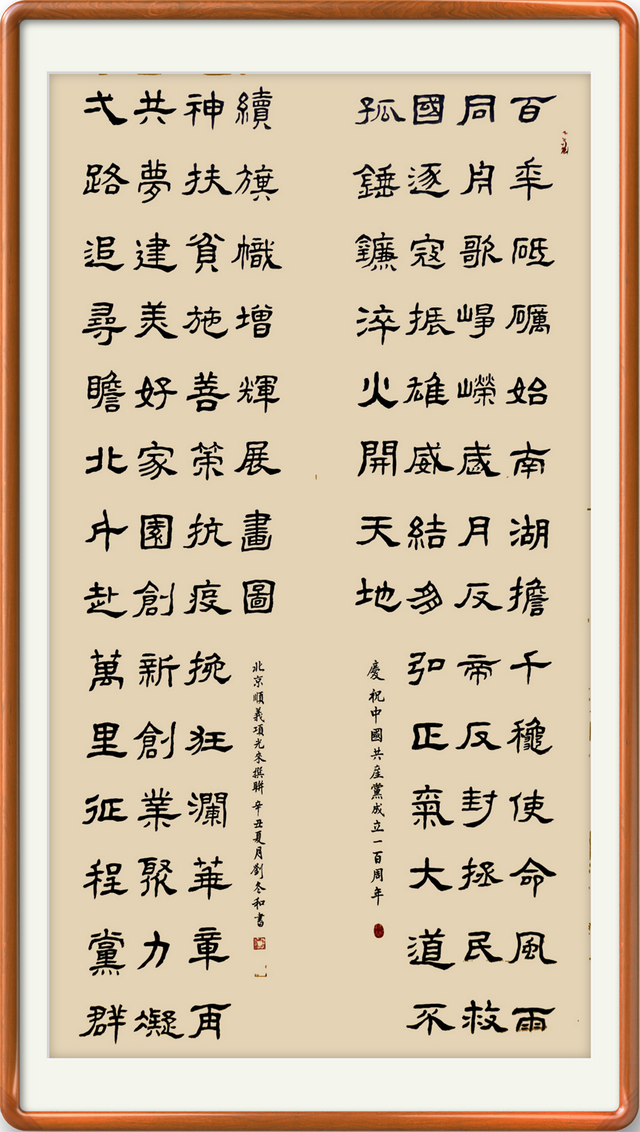 百年砥礪始南湖擔千穐使命風雨
同舟歌崢嶸歲月反帝反封拯民救
國逐寇振雄威結多弘正氣大道不
孤錘鐮淬火開天地
慶祝中國共產黨成立一百周年
弌路追尋瞻北斗赴萬里征程黨群
共夢建美好家園創新創業聚力凝
神扶貧施善策抗疫挽狂瀾華章再
續旗幟增輝展畫圖
北京順義項光來撰聯 辛丑夏月劉冬和書